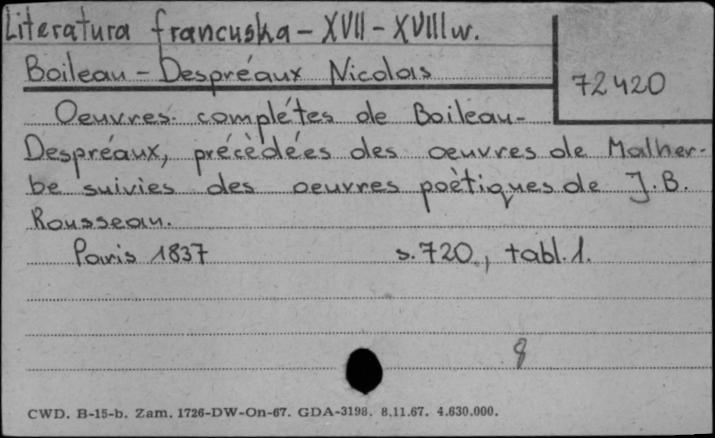 Literatura francuska - XVII - XVIII w.
Boileau - Despréaux Nicolas
72420
Oeuvres complétes de Boileau-
Despréaux, précèdées des oeuvres de Malher-
be suivies des oeuvres poètiques de J. B.
Rousseau.
Paris 1837 s. 720, tabl. 1.
8
CWD. B-15-b. Zam. 1726-DW-On-67. GDA-3198. 8.11.67. 4.630.000.